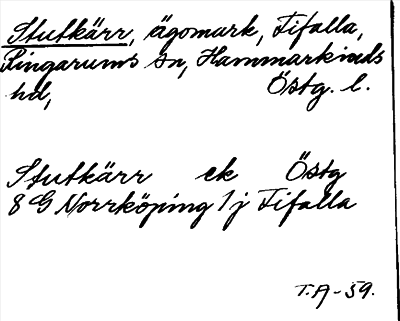 Stutkärr, ägomark, Fifalla,
Ringarums sn, Hammarkinds
hd, Östg. l.
Stutkärr ek Östg
8 G Norrköping 1 j Fifalla
T.A-59.